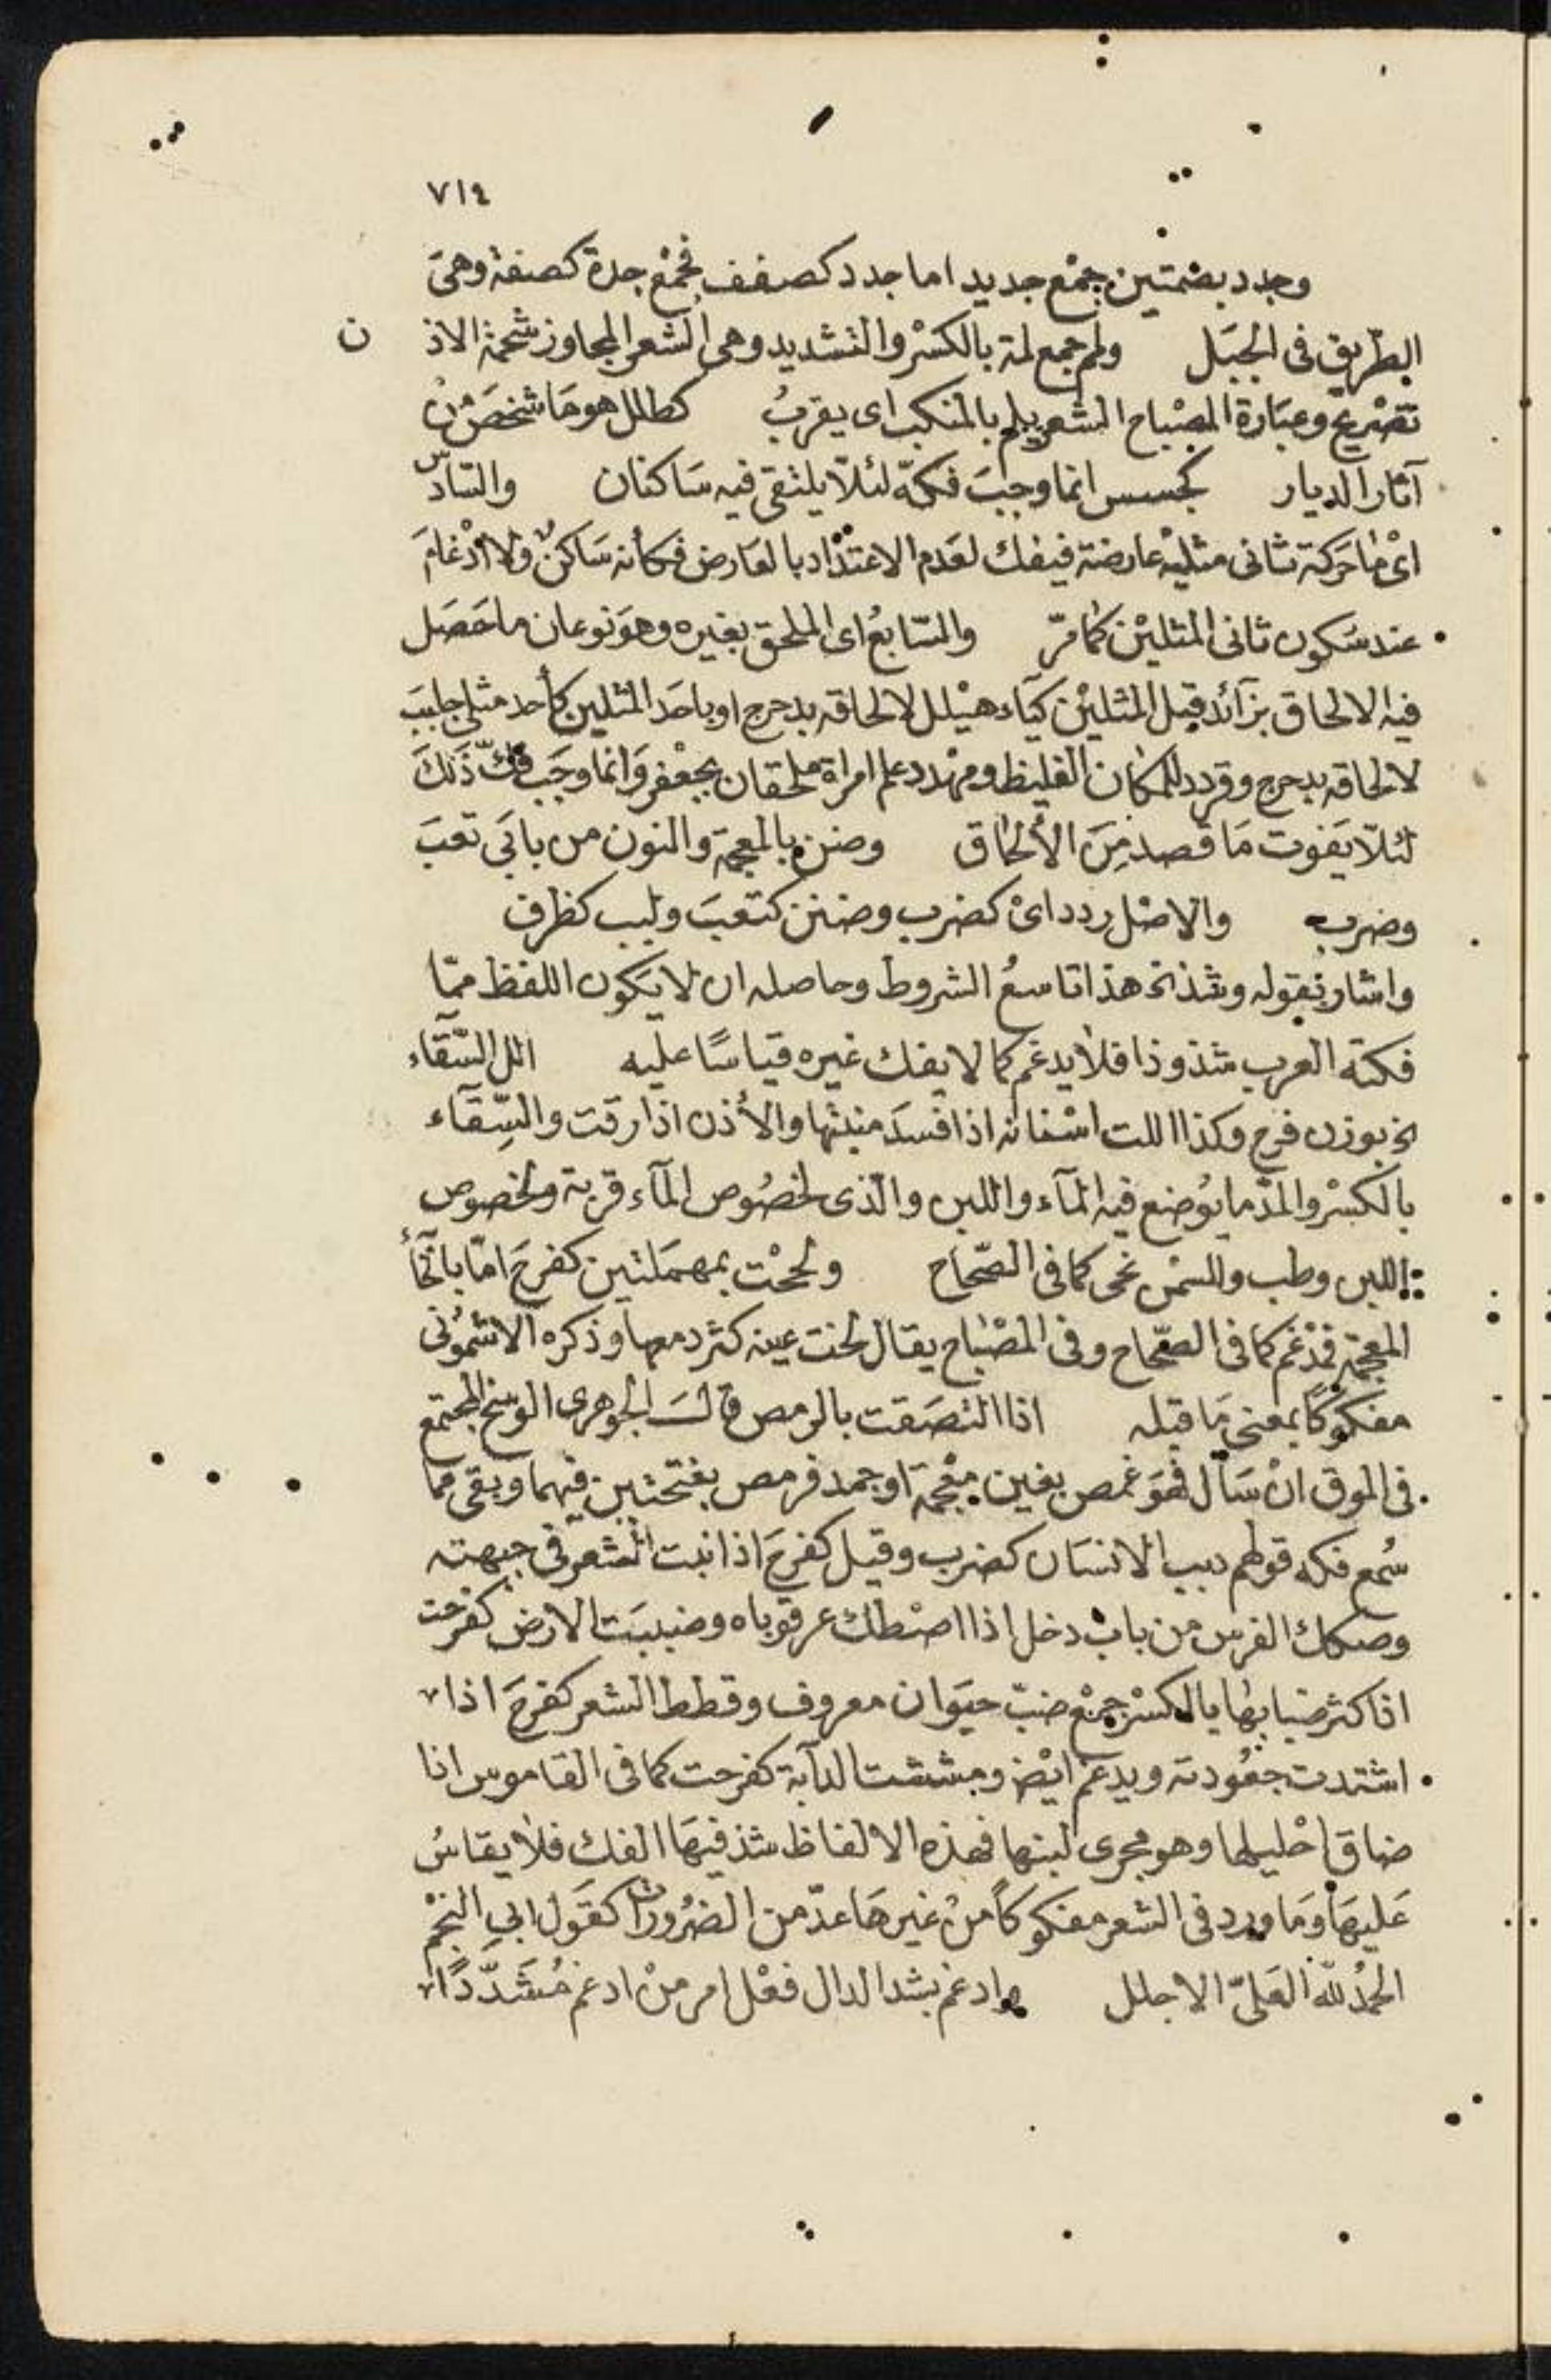 ٧١٤
وجدد بضمتين جمْع جديد اما جدد كصفف فجمْع جدة كصفة وهىَ
الطّريق فى الجبَل ولمم جمع لمة بالكسْر والتشديد وهى الشعر المجاوز شحمة الاذن
تصْريح وعبَارة المصْباح الشعر يلم بالمنكب اى يقربُ كطلل هو مَا شخصَ منْ
آثار الديار كجسس انما وجبَ فكّه لئلاّ يلتقى فيه سَاكنان والسّادس
اىْ مَا حَركة ثانى مثليْه عارضة فيفك لعَدم الاعتدَاد بالعَارض فكأنه سَاكنٌ ولا ادْغامَ
عند سُكون ثانى المثليْن كمَا مرّ والسّابعُ اى الملحق بغيره وهوَ نوعان ما حَصَل
فيه الالحاق بزآئد قبل المثليْن كيَآء هيْلل لالحاقه بدحرج او باحَد المثلين كأحد مثلى جلببَ
لالحاقه بدحرج وقردد للمكان الغليظ ومهْدد علم امراة ملحقان بجعْفر وَانما وجَب فكّ ذَلكَ
لئلاّ يَفوت مَا قصد مِنَ الألحَاق وضنن بالمعجمة والنون من بابَى تعبَ
وضرب والاصْل ردد اىْ كضرب وضنن كتعبَ ولبب كظرف
واشار بقوله وشذ نح هذا تاسعُ الشروط وحاصله ان لا يَكون اللفظ ممّا
فكتْه العرب شذوذا فلاَ يدغم كما لا يفك غيره قياسًا عليه الل السّقَاء
نح بوزن فرح وكذا اللت اسْنانه اذا فسدَ منبتها والأذن اذا رقت والسِّقآء
بالكسْر والمدّ ما يوُضع فيه المآء واللبن والّذى لخصُوص المآء قربة ولخصوص
اللبن وطب وللسمْن نحى كما فى الصّحَاح ولححْت بمهمَلتين كفرحَ امّا بالخَآء
المعجمة فمدْغم كما فى الصّحاح وفى المصْبَاح يقال لخت عينه كثر دمعها وذكره الاشمُونى
مفكوكًا بمعنى مَا قبله اذا التصَقت بالرمص قالَ الجوهرى الوسَخ المجتمع
فى الموق انْ سَال فهوَ غمص بغين معْجمة او جمد فرمص بفتحتين فيهما وبقى مما
سُمع فكه قولهم دبب الانسَان كضرب وقيل كفرحَ اذا نبت الشعر فى جبهته
وصكك الفرس من باب دخل اذا اصْطك عرقوباه وضببَت الارض كفرْحت
اذا كثر ضبابها بالكسْر جمْع ضبّ حيَوان معروف وقطط الشعر كفرحَ اذا
اشتدت جعُودته ويدغم ايْضا ومششت الدآبة كفرحت كما فى القاموس اذا
ضاق احْليلها وهو مجرى لبنها فهذه الالفاظ شذ فيهَا الفك فلاَ يقاسُ
عَليهَا وَمَا ورد فى الشعر مفكوكًا منْ غيرهَا عدّ من الضرُورات كقَول ابى النجْم
الحمْدُ للّه العَلىّ الاجلل وادغم بشد الدال فعْل امر منْ ادغم مُشَدّدًا